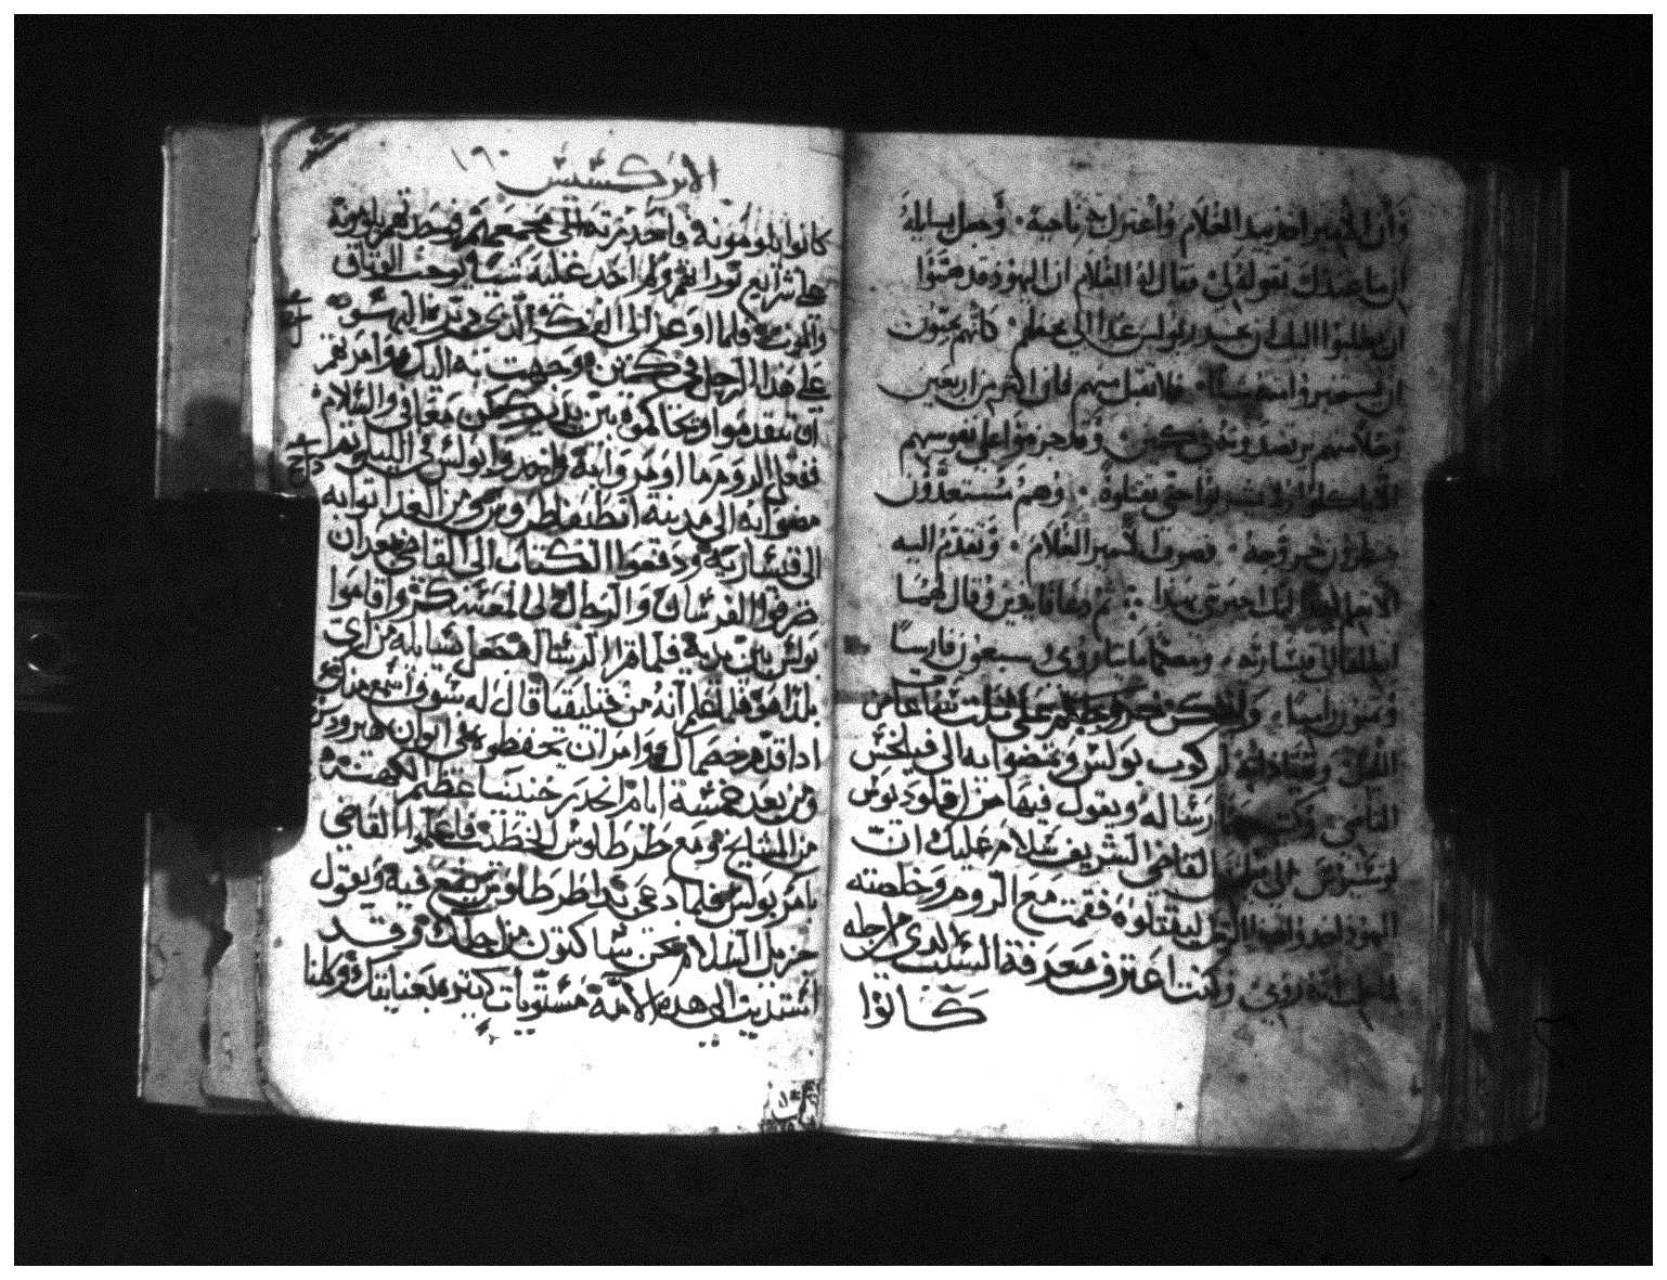 وان الامير اخذ بيد الغلام واعتزل به ناحية وجعل يسايله
ان ما عندك تقوله لي فقال له الغلام ان اليهود قد هموا
ان يطلبوا اليك ان تحدر بولس غدا الي محفلهم كانهم يحبون
ان يستخبروا منه شيا فلا تقبل منهم فان اكثر من اربعين
رجلا منهم يرتصدونه في كمين وقد حرموا على نفوسهم
الا ياكلوا ولا يشربوا حتى يقتلوه وهم مستعدون
ينتظرون خروجه فصرف الامير الغلام وتقدم اليه
الا تعلم احدا انك اخبرتني بهذا ثم دعا قايدين وقال لهما
انطلقا الي قيسارية ومعكما مايتا رومي وسبعون فارسا
وميتو راميا وليكن خروجكم على ثلث ساعات من
الليل لركوب بولس ويمضوا به الى فيلخس
القاضي وكتب رسالة ويقول فيها من اقلوديوس
لوسيوس الى فيلخس القاضي الشريف سلام عليك ان
اليهود اخذوا هذا الرجل ليقتلوه فقمت مع الروم وخلصته
لما علمت انه رومي وكنت اعترف معرفة السبب الذي من اجله
كانوا
الابركسيس ١٦٠
كانوا يلومونه فاحدرته الى مجمعهم فوجدتهم يلومونه
على شرايع توراتهم ولم اجد عليه شيا يوجب الوثاق
والموت فلما اوعز الى الفكر الذي دبرته اليهود
على هذا الرجل في كمين وجهت به اليك وامرتهم
ان يتقدموا ويخاكموه بين يديك وكن معافى والسلام
ففعل الروم ما اومروا به واخدوا بولس في الليل
مضوا به الى مدينة انطيفطروس ومن الغد اتوا به
الى قيسارية ودفعوا الكتاب الى القاضي بعد ان
صرفوا الفرسان والرجالة الى المعسكر واقاموا
بولس بين يديه فلما قرا الرسالة جعل يسايله من اي
بلد هو فلما علم انه من قيليقيا قال له سوف اسمع منك
ادا قدم خصماك وامر ان يحفظوه في ايوان هيرودس
ومن بعد خمسة ايام انحدر حنينيا عظيم الكهنة
من المشايخ ومع طرطاوس الخطيب فاعلموا القاضي
بامر بولس فلما دعي بدا طرطاوس يقع فيه ويقول
جزيل السلام نحن ساكنون من اجلك وقد
استديت الى هده الامة مستويات كثيرة بعنايتك وكلنا